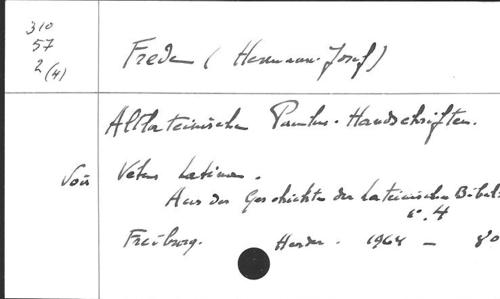 310
57
2 (4)
Frede ( Hermann Josef )
Altlateinische Paulus-Handschriften.
Voir Vetus Latina.
Aus der Geschichte der Lateinischen Bibel.
v. 4
Freiburg. Herder. 1964 – 8o